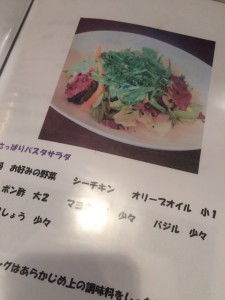 さっぱりパスタサラダ
お好みの野菜　シーチキン　オリーブオイル　小1
ポン酢　大2　マヨ　少々　バジル　少々
しょう　少々
グはあらかじめ上の調味料をしっ